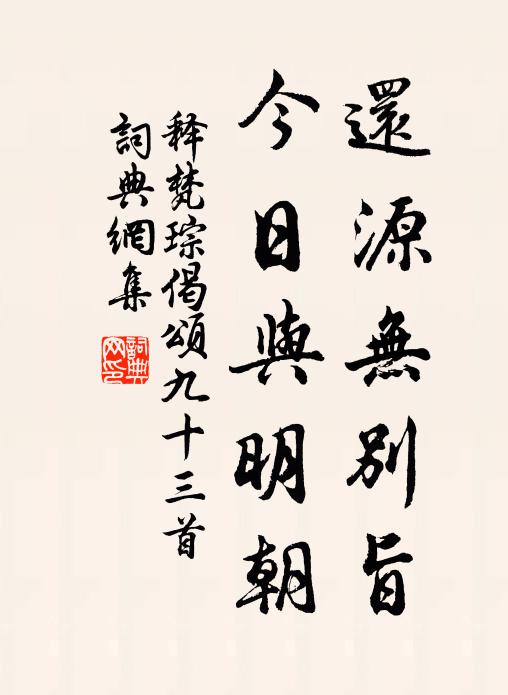 還源無別旨
今日與明朝
释梵琮偈頌九十三首
詞典網集
詞典网印